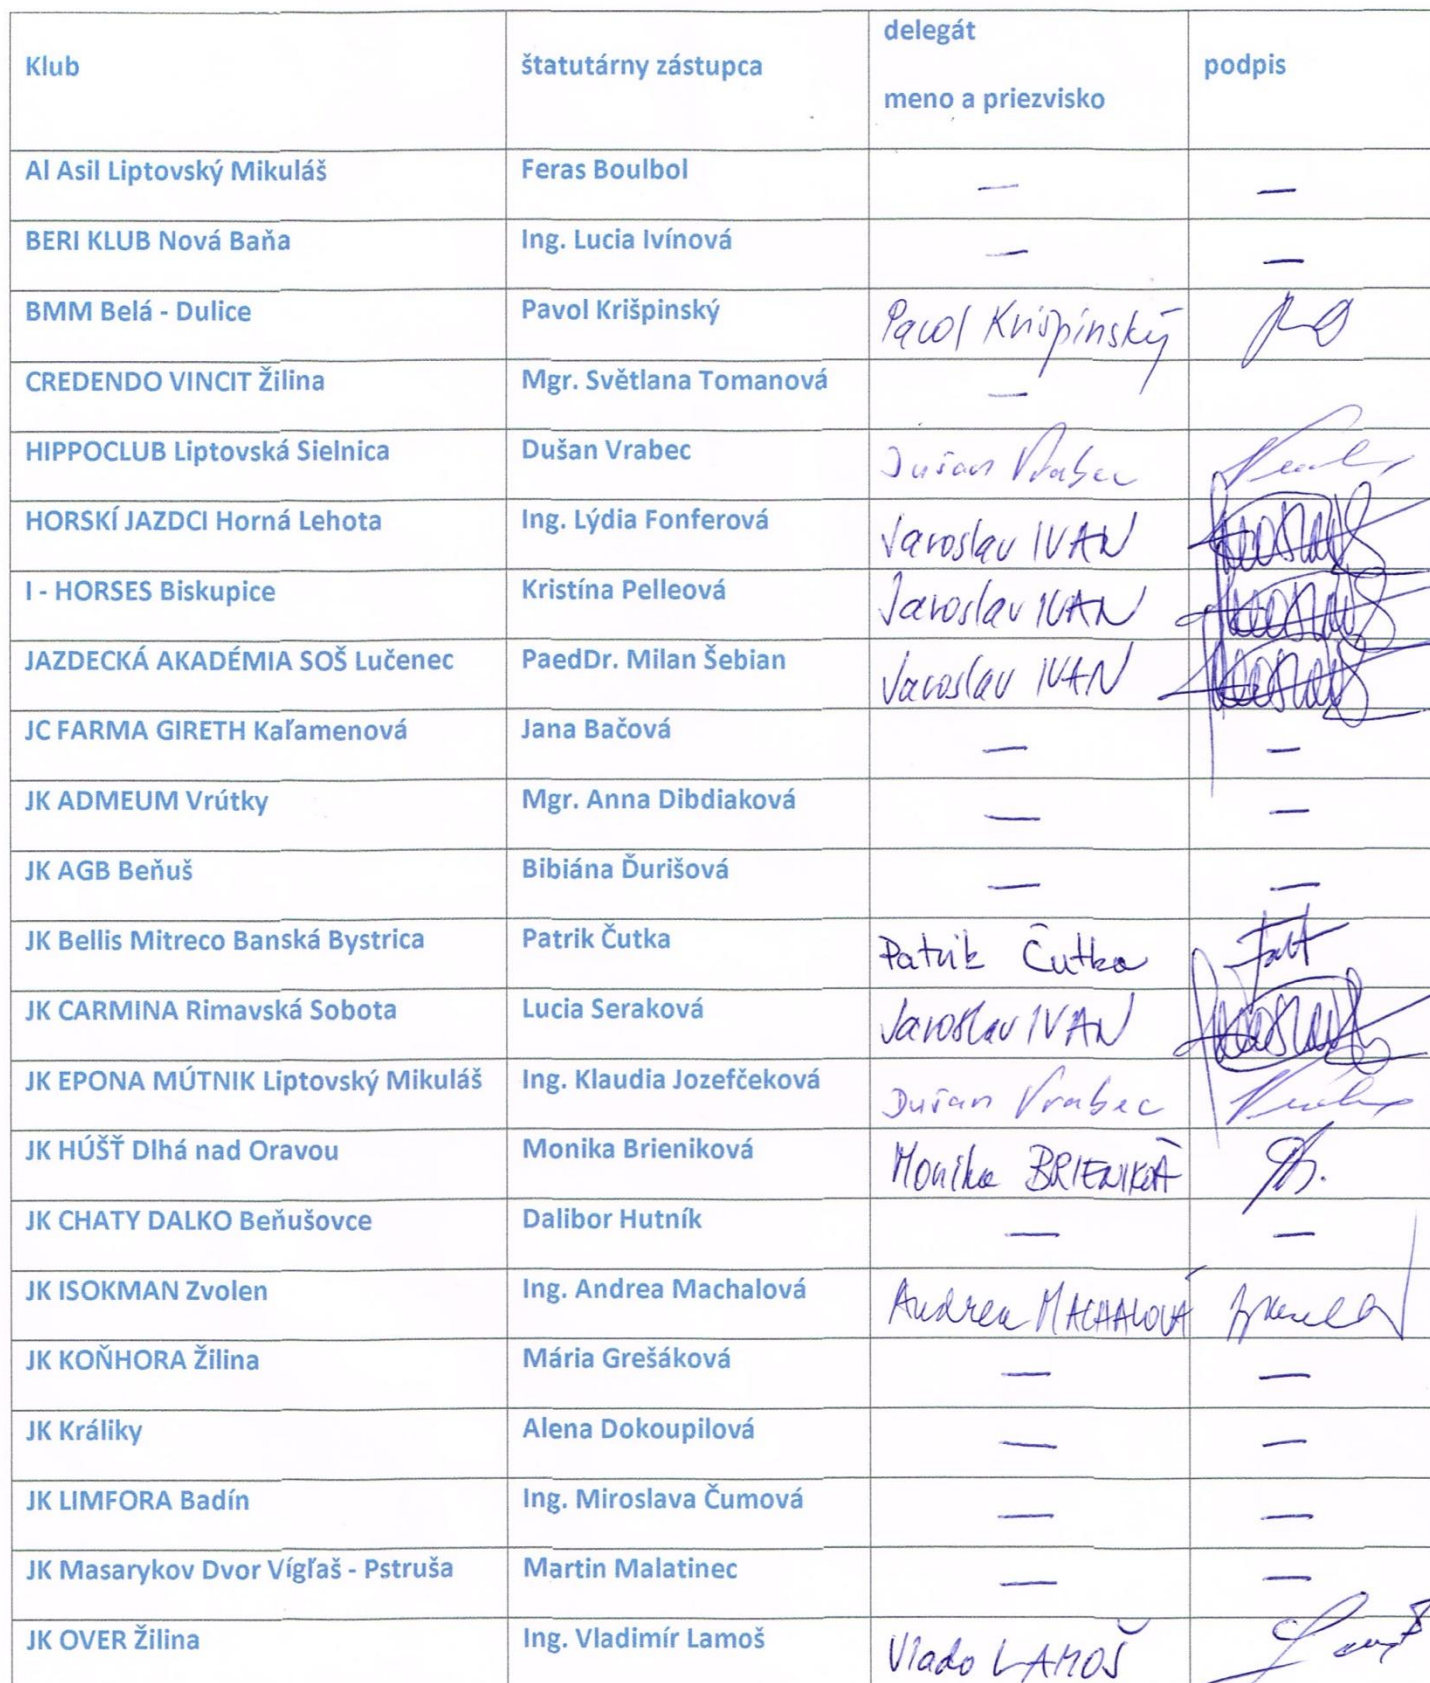 Klub štatutárny zástupca delegát meno a priezvisko podpis
Al Asil Liptovský Mikuláš Feras Boulbol — —
BERI KLUB Nová Baňa Ing. Lucia Ivínová — —
BMM Belá - Dulice Pavol Krišpinský Pavol Krišpinský
CREDENDO VINCIT Žilina Mgr. Světlana Tomanová —
HIPPOCLUB Liptovská Sielnica Dušan Vrabec Dušan Vrabec
HORSKÍ JAZDCI Horná Lehota Ing. Lýdia Fonferová Jaroslav IVAN
I - HORSES Biskupice Kristína Pelleová Jaroslav IVAN
JAZDECKÁ AKADÉMIA SOŠ Lučenec PaedDr. Milan Šebian Jaroslav IVAN
JC FARMA GIRETH Kaľamenová Jana Bačová — —
JK ADMEUM Vrútky Mgr. Anna Dibdiaková — —
JK AGB Beňuš Bibiána Ďurišová — —
JK Bellis Mitreco Banská Bystrica Patrik Čutka Patrik Čutka
JK CARMINA Rimavská Sobota Lucia Seraková Jaroslav IVAN
JK EPONA MÚTNIK Liptovský Mikuláš Ing. Klaudia Jozefčeková Dušan Vrabec
JK HÚŠŤ Dlhá nad Oravou Monika Brieniková Monika BRIENIKOVÁ
JK CHATY DALKO Beňušovce Dalibor Hutník — —
JK ISOKMAN Zvolen Ing. Andrea Machalová Andrea MACHALOVÁ
JK KOŇHORA Žilina Mária Grešáková — —
JK Králiky Alena Dokoupilová — —
JK LIMFORA Badín Ing. Miroslava Čumová — —
JK Masarykov Dvor Vígľaš - Pstruša Martin Malatinec — —
JK OVER Žilina Ing. Vladimír Lamoš Vlado LAMOŠ